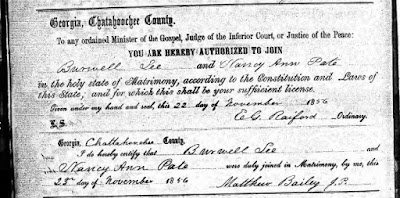 Georgia, Chatahoochee County.
To any ordained Minister of the Gospel, Judge of the Inferior Court, or Justice of the Peace:
YOU ARE HEREBY AUTHORIZED TO JOIN
Burwell Lee and Nancy Ann Pate
in the holy state of Matrimony, according to the Constitution and Laws of
this State; and for which this shall be your sufficient license.
Given under my hand and seal, this 22 day of November 1856
L.S. E.G. Raiford Ordinary.
Georgia, Chattahoochee County.
I do hereby certify that Burwell Lee and
Nancy Ann Pate were duly joined in Matrimony, by me, this
25th day of November 1856 Matthew Bailey J.P.